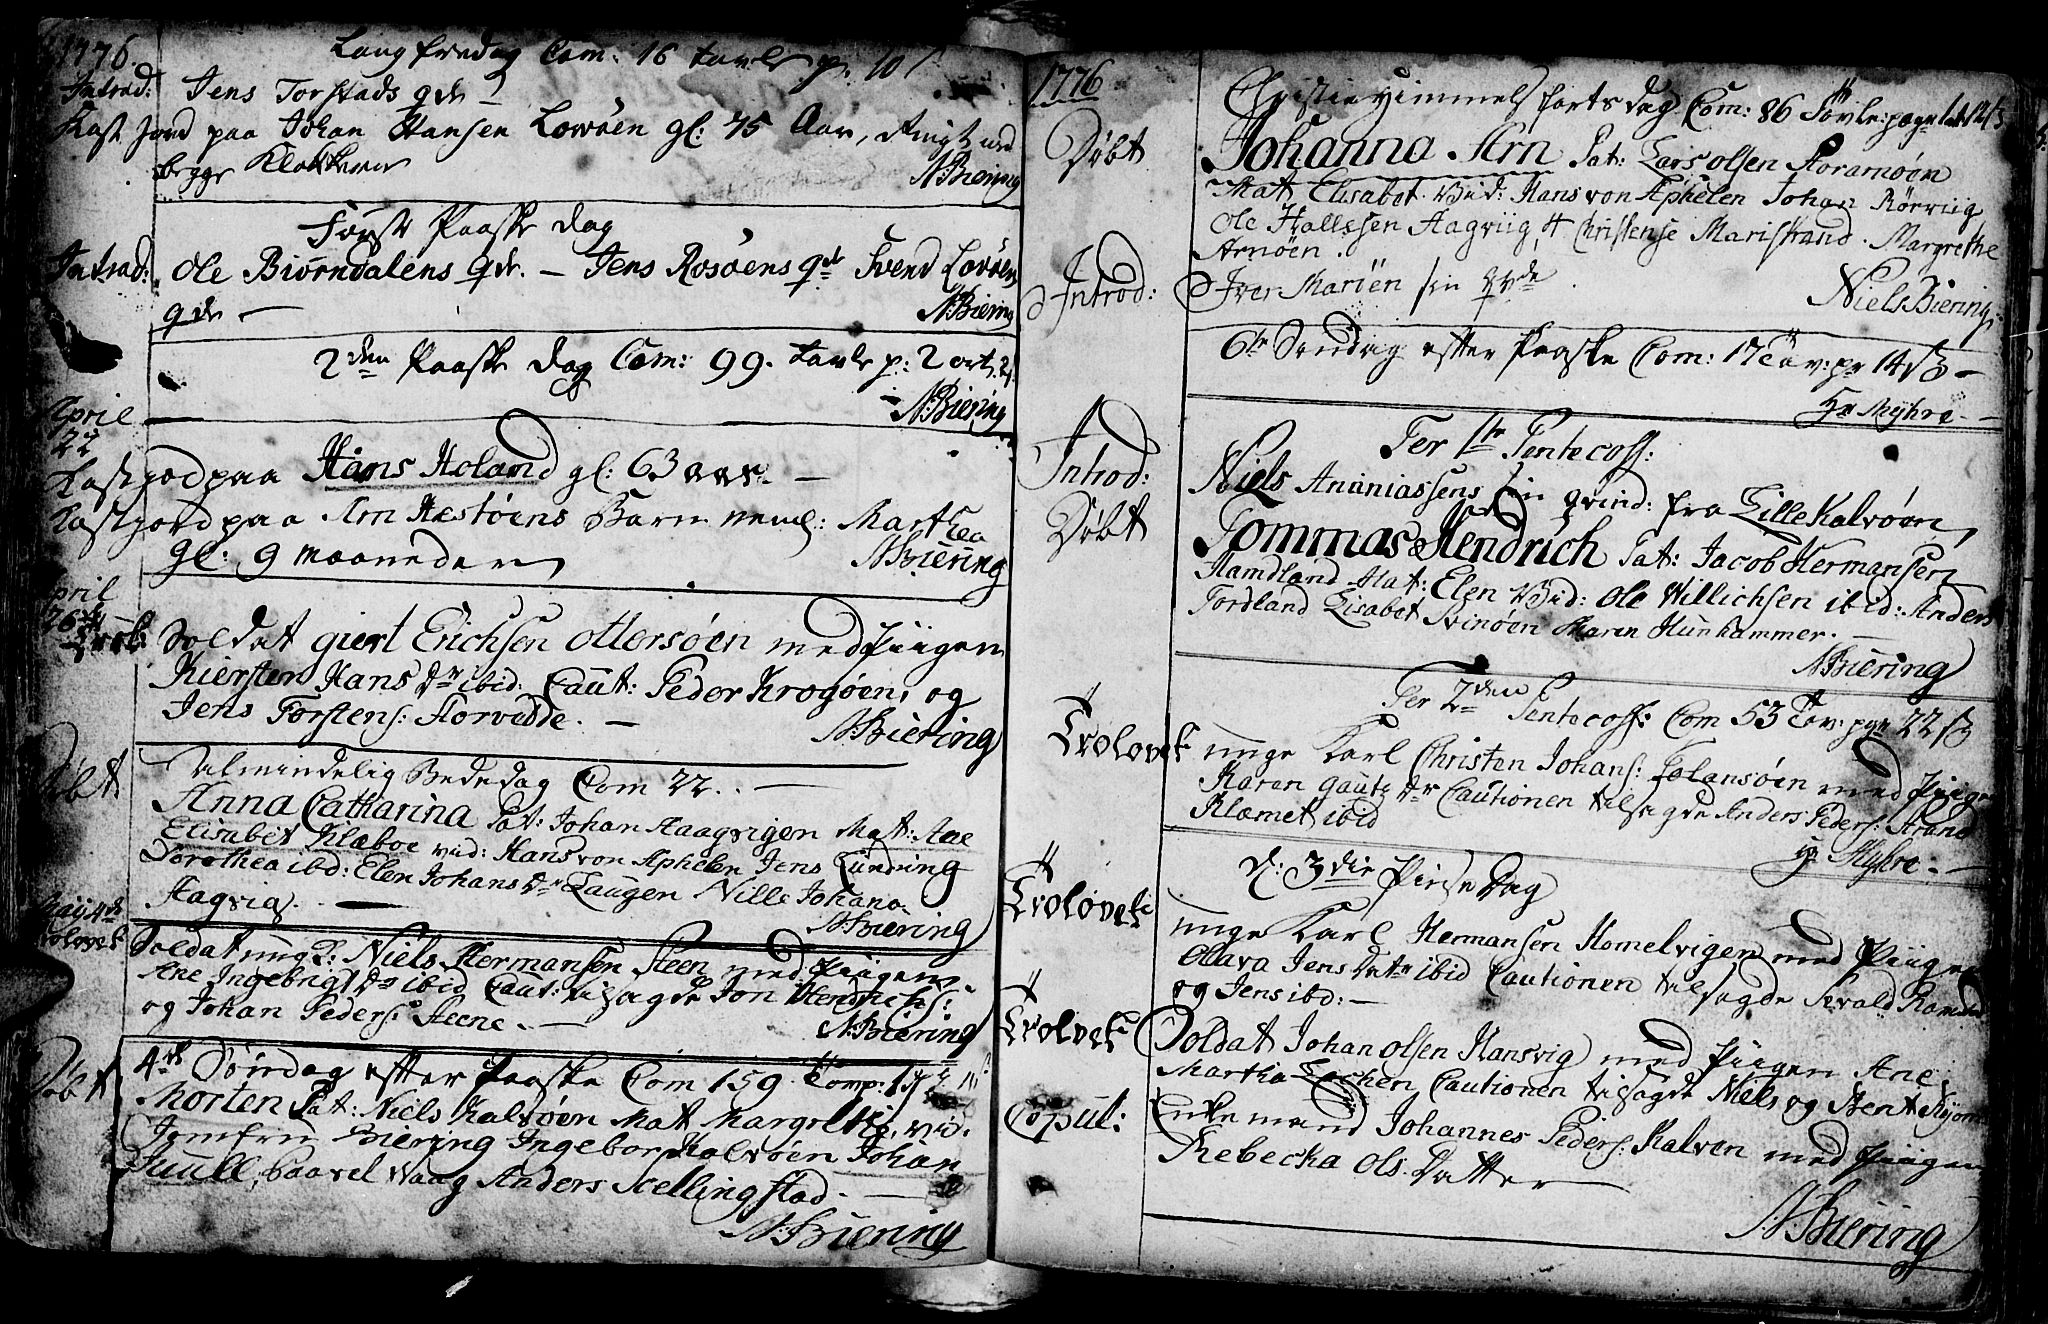 1776.
Langfredag Com: 16 tavle p: 10 ß
Introd: Jens Torstads qde –
Kast Jord paa Johan Hansen Lovøen gl: 75 Aar, Ringt med
begge Klokkerne
N: Biering
Første Paaske Dag
Introd: Ole Biørndalens qde. – Jens Rosøens qde Svend Lovøens
qde –
N: Biering
2den Paaske Dag Com: 99. tavle p: 2 ort
N: Biering
April
22
Kast Jord paa Hans Holand gl: 63 aar. –
Kast Jord paa Arn Hestøens Barn neml: Marthea
gl: 9 maaneder
N: Biering
April
26
Trol: Soldat giert Erichsen Ottersøen med Piigen
Kiersten Hans Dr ibid: Caut: Peder Krogøen, og
Jens Torstens: Horvedde. –
N: Biering
Almindelig Bededag Com 22. –
Døbt Anna Catharina Pat: Johan Haagvigen Mat: Ane
Elisabet Klæboe vid: Hans von Aphelen Jens Lundring
Dorothea ibd: Elen Johans Dr Laugen Nille Johana
Hagvig. –
N: Biering
Maij 4de
Trolovet Soldat ung K: Niels Hermansen Steen med Piigen
Ane Ingebrigt Dr ibid Caut: tilsagde Jon Hendrichs:
og Johan Peders: Steene. –
N: Biering
4de Søndag efter Paaske Com 159
Døbt Morten Pat: Niels Kalvøen Mat Margrethe, vid:
Jomfru Biering Ingebor Kalvøen Johan
Juull, Paavel Vaag Anders Sellingstad. –
N: Biering
1776
Christi Himmelfarts Dag Com: 86 Tavle: page
Døbt Johanna Arn Pat: Lars Olsen Horamøen
Mat Elisabet Vid: Hans von Aphelen Johan Rørviig
Ole Hallssen Aagviig, Christense Maristrand. Margrethe
Arnøen.
Introd: Iver Mariøen sin qvde.
Niels Biering
6te Søndag efter Paaske Com: 17 Tav: pgr 14 ß –
Hr Myhre –
Fer 1te Pentecost:
Introd: Niels Ananiassens sin qvind: fra Lille Kalvøen
Døbt Tommas Hendrich Pat: Jacob Hermansen
Ramdland Mat: Elen Vid: Ole Willichsen ibid: Anders
Fordland Lisabet Svinøen Maren Hunhammer. –
N: Biering
Fer 2den Pentecost: Com 53 Tav: pgr 22 ß
Trolovet unge Karl Christen Johans: Folansøen med Piigen
Karen Gautz Dr Cautionen tilsagde Anders Peders: Strand
Klæmet ibid
Hr Myhre. –
D: 3die Pinse Dag
Trolovet: unge Karl Hermansen Homelvigen med Piigen
Olava Jens Datr ibid Cautionen tilsagde Sevald Ramd
og Jens ibd: –
Trolovet Soldat Johan Olsen Hansvig med Piigen Ane
Martha Lochen Cautionen tilsagde Niels og Bent
Copul: Enke mand Johannes Peders: Kalvøen med Piigen
Rebecka Ols Datter –
N: Biering